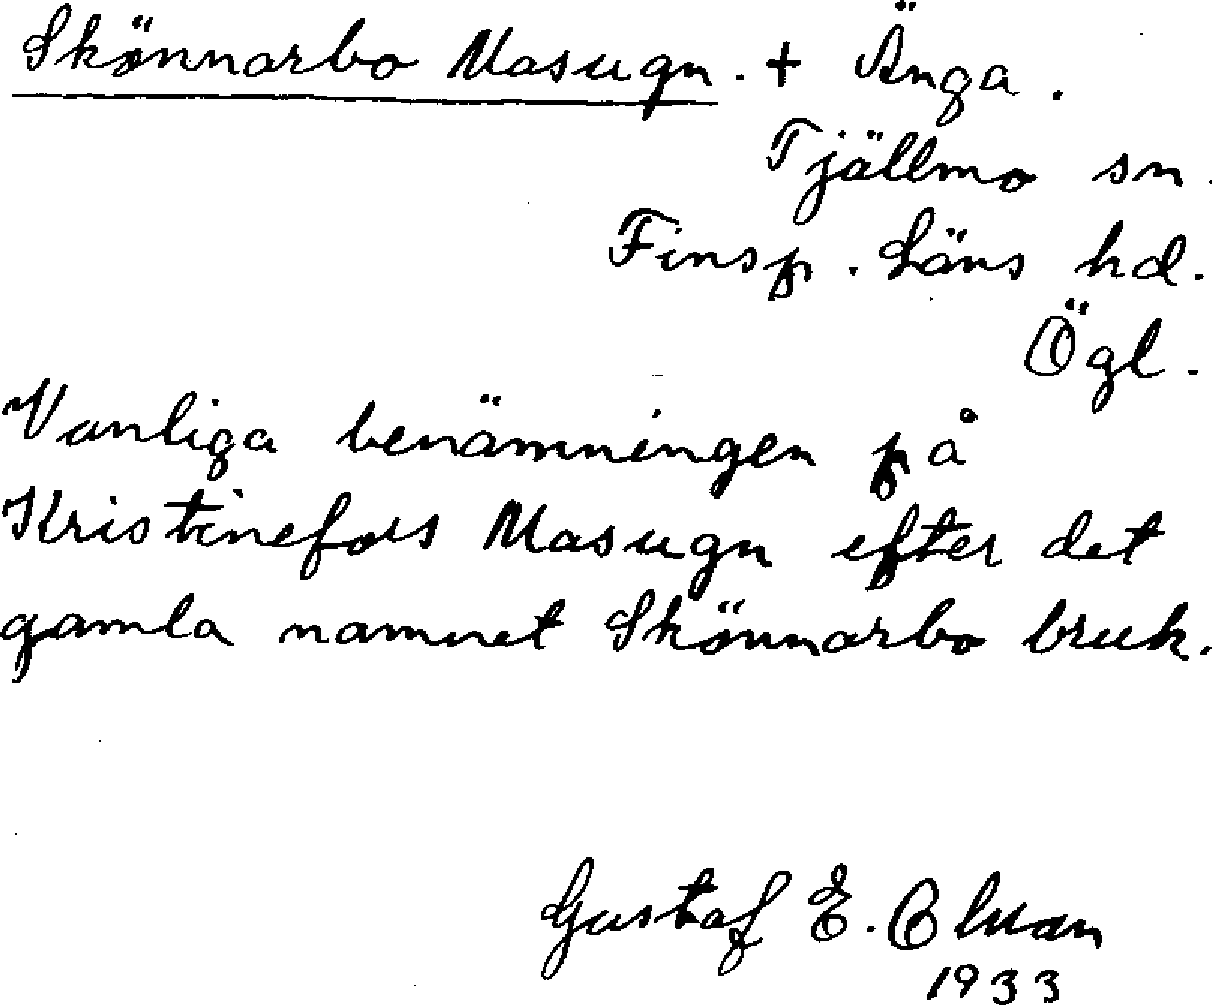 Skönnarbo Masugn. + Änga.
Tjällmo sn.
Finsp. Läns hd.
Ögl.
Vanliga benämningen på
Kristinefors Masugn efter det
gamla namnet Skönnarbo bruk.
Gustaf E.
1933